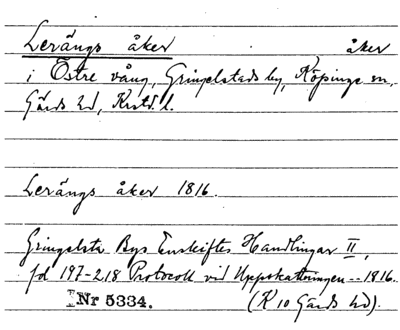 Lerängs åker åker
i Östre vång, Gringelstads by, Köpinge sn,
Gärds hd, Krstd. l.
Lerängs åker 1816.
Gringelsta Bys Enskiftes Handlingar II,
fol 197-218 Protocoll vid Uppskattningen -- 1816.
Nr 5334. (K 10 Gärds hd).